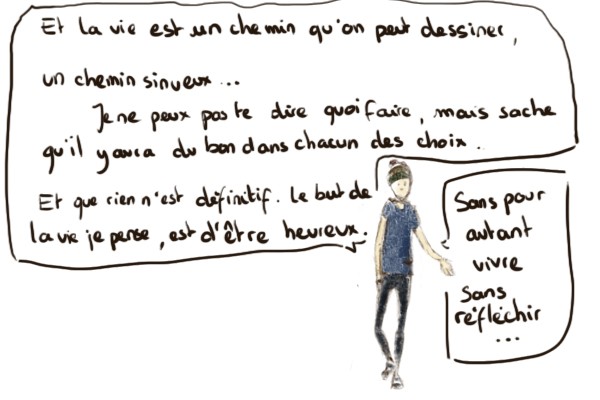 Et la vie est un chemin qu'on peut dessiner,
un chemin sinueux...
Je ne peux pas te dire quoi faire, mais sache
qu'il y aura du bon dans chacun des choix.
Et que rien n'est définitif. Le but de
la vie je pense, est d'être heureux.
Sans pour
autant
vivre
sans
réfléchir
...